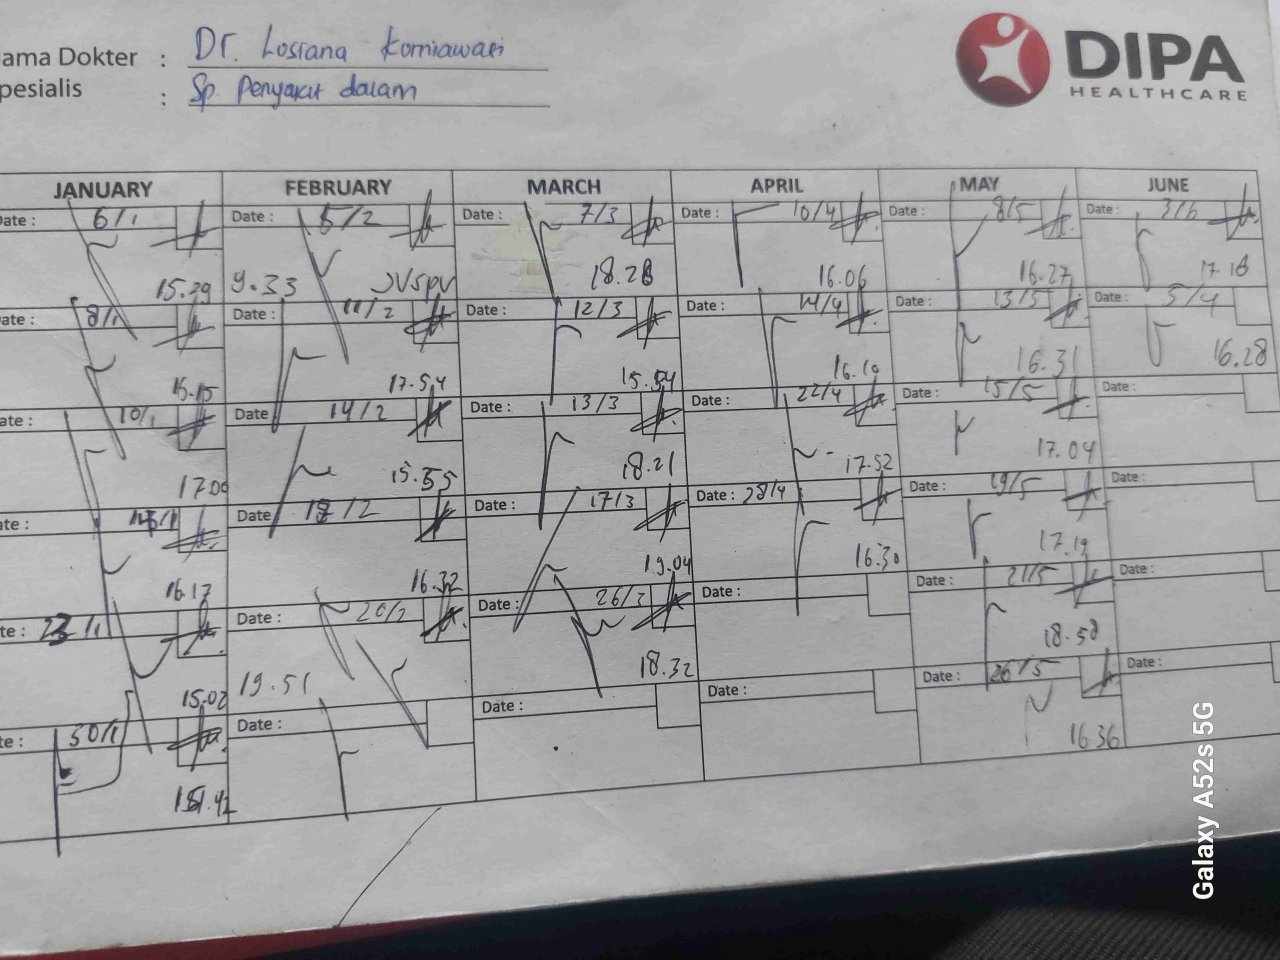 ama Dokter : Dr. Losiana Korniawati
pesialis : Sp Penyakit dalam
DIPA
HEALTHCARE
JANUARY FEBRUARY MARCH APRIL MAY JUNE
ate : 6/1 Date : 5/2 Date : 7/3 Date : 10/4 Date : 8/5 Date : 3/6
15.29 9.33 18.28 16.06 16.27 17.18
ate : 8/1 Date : 11/2 Date : 12/3 Date : 14/4 Date : 13/5 Date : 5/4
15.15 17.54 15.54 16.19 16.31 16.28
ate : 10/1 Date 14/2 Date : 13/3 Date : 22/4 Date : 15/5 Date :
17.00 15.55 18.21 17.52 17.04
te : Date 18/2 Date : 17/3 Date : 28/4 Date : 19/5 Date :
16.17 16.32 19.04 16.30 17.19
te : 23/1 Date : 20/2 Date : 26/3 Date : Date : 21/5 Date :
15.02 19.51 18.32 18.58
te : 30/1 Date : Date : Date : Date : 26/5 Date :
16.36
Galaxy A52s 5G